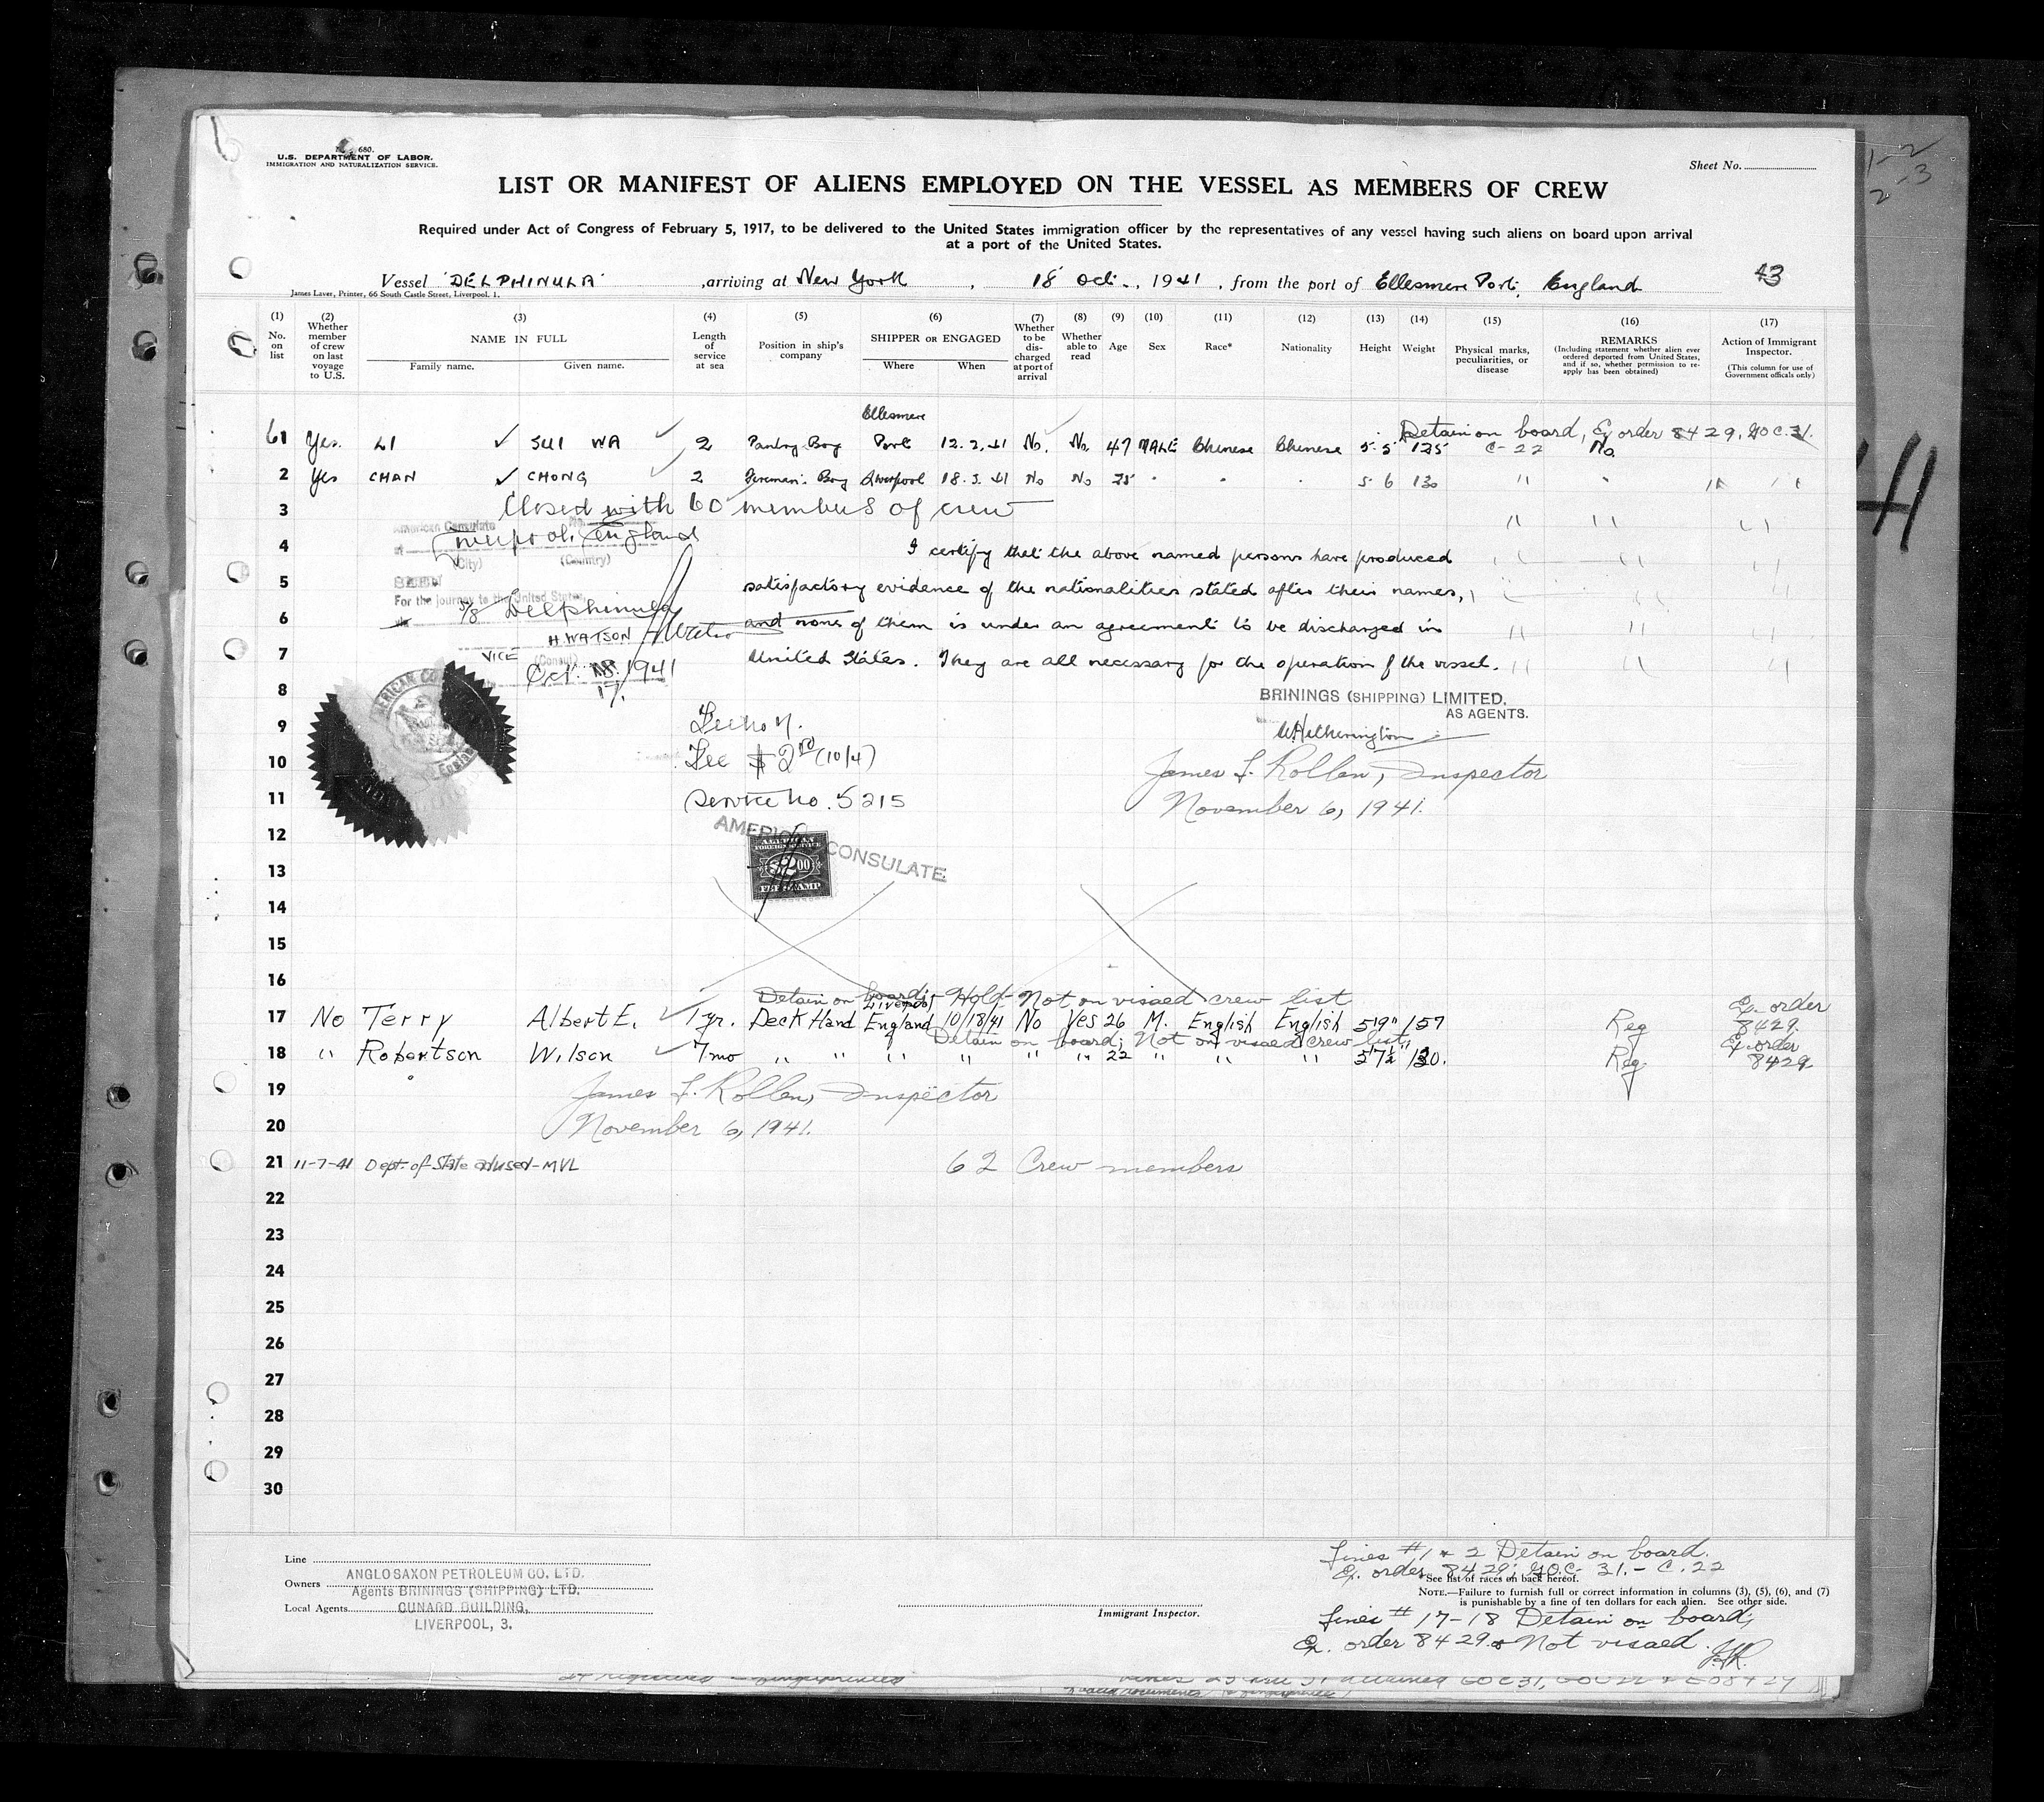 680.
U.S. DEPARTMENT OF LABOR.
IMMIGRATION AND NATURALIZATION SERVICE.
Sheet No.
LIST OR MANIFEST OF ALIENS EMPLOYED ON THE VESSEL AS MEMBERS OF CREW
Required under Act of Congress of February 5, 1917, to be delivered to the United States immigration officer by the representatives of any vessel having such aliens on board upon arrival
at a port of the United States.
Vessel "DELPHINULA" , arriving at New York , 18 Oct. , 1941 , from the port of Ellesmere Port, England 43
James Laver, Printer, 66 South Castle Street, Liverpool. 1.
(1) No. on list
(2) Whether member of crew on last voyage to U.S.
(3) NAME IN FULL Family name. Given name.
(4) Length of service at sea
(5) Position in ship's company
(6) SHIPPER OR ENGAGED Where When
(7) Whether to be discharged at port of arrival
(8) Whether able to read
(9) Age
(10) Sex
(11) Race*
(12) Nationality
(13) Height
(14) Weight
(15) Physical marks, peculiarities, or disease
(16) REMARKS (Including statement whether alien ever ordered deported from United States, and if so, whether permission to re-apply has been obtained)
(17) Action of Immigrant Inspector. (This column for use of Government officials only)
Detain on board, Ex order 8429, GOC. 31.
61 Yes. LI SUI WA 2 Pantry Boy Ellesmere Port 12.2.41 No. No. 47 MALE Chinese Chinese 5.5 125 C-22 No
2 Yes CHAN CHONG 2 Firemen's Boy Liverpool 18.3.41 No No 25 " " " 5 6 130 " " " "
3 Closed with 60 members of crew
American Consulate
4 Liverpool, England
(City) (Country)
I certify that the above named persons have produced
5 satisfactory evidence of the nationalities stated after their names,
For the journey to the United States
S/S Delphinula
6 and none of them is under an agreement to be discharged in
H. WATSON
7 United States. They are all necessary for the operation of the vessel.
VICE (Consul)
Oct. 18. 1941
17.
8 BRININGS (SHIPPING) LIMITED.
AS AGENTS.
9 W. Hetherington
10 Fee $ 2 00 (10/4) James F. Rollen, Inspector
11 Service No. 5215 November 6, 1941.
12 AMERICAN CONSULATE
AMERICAN
FOREIGN SERVICE
13 $2.00
FEE STAMP
14
15
16
Detain on board; Hold - Not on visaed crew list
17 No Terry Albert E. 1 yr. Deck Hand Liverpool England 10/18/41 No Yes 26 M. English English 5'9" 157 Reg Ex. order 8429.
Detain on board; Not on visaed crew list,
18 " Robertson Wilson 7 mo " " " " " " 22 " " " 5'7½" 130. Reg. Ex. order 8429
19 James F. Rollen, Inspector
20 November 6, 1941.
21 11-7-41 Dept. of State advised - MVL 62 Crew members
22
23
24
25
26
27
28
29
30
Line
Owners ANGLO SAXON PETROLEUM CO. LTD.
Agents BRININGS (SHIPPING) LTD.
Local Agents CUNARD BUILDING,
LIVERPOOL, 3.
Immigrant Inspector.
Lines #1 & 2 Detain on board.
Ex. order 8429; GOC. 31. - C. 22
*See list of races on back hereof.
NOTE.—Failure to furnish full or correct information in columns (3), (5), (6), and (7)
is punishable by a fine of ten dollars for each alien. See other side.
Lines # 17-18 Detain on board;
Ex. order 8429 & Not visaed. JFR.